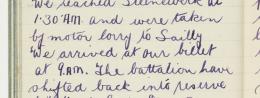 we reached Steenwerck at
1.30 AM. and were taken
by motor lorry to Sailly
We arrived at our billet
at 9. AM. The battalion have
shifted back into reserve